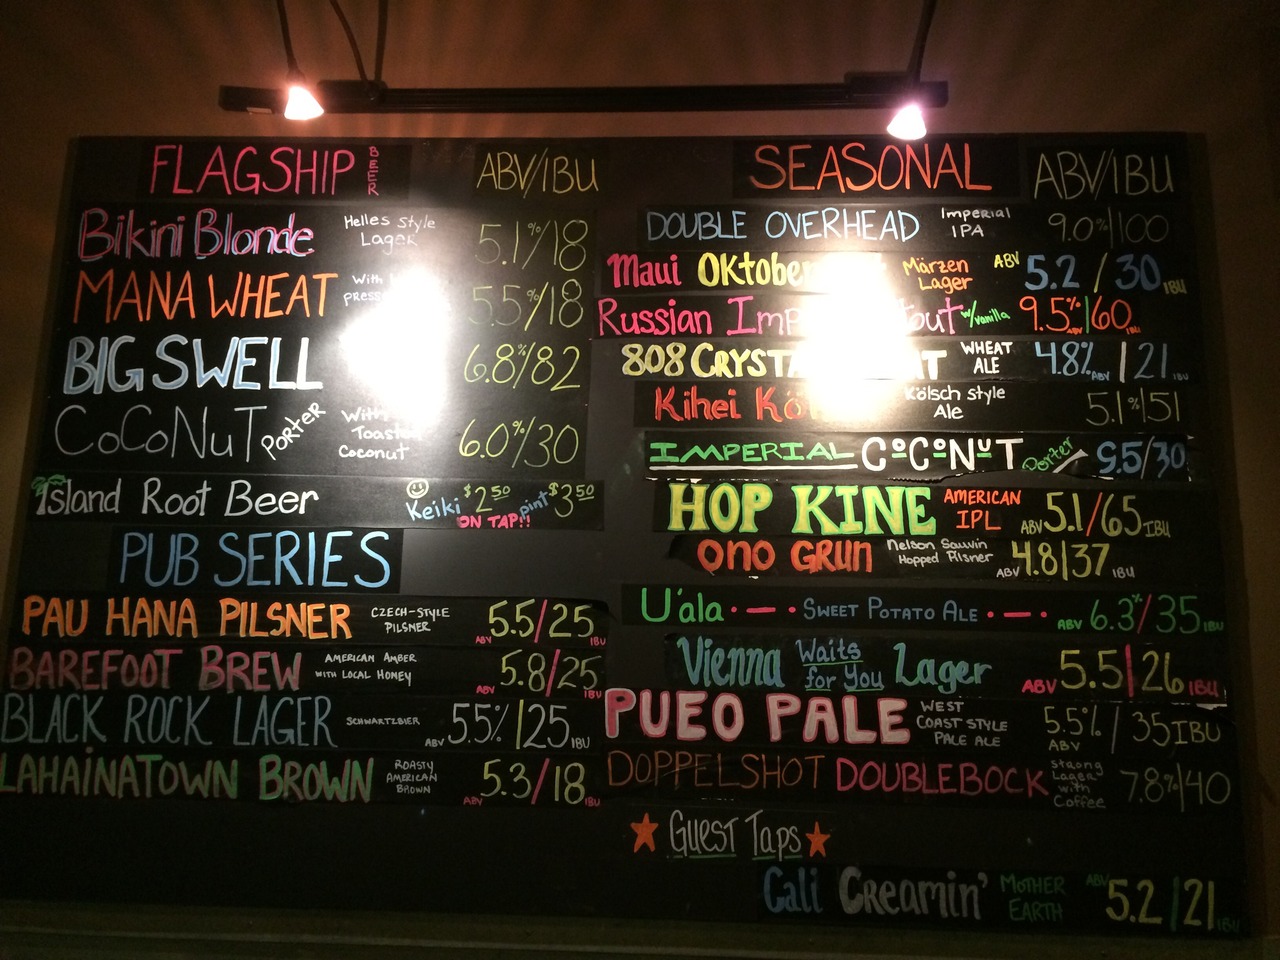 FLAGSHIP BEER ABV/IBU
Bikini Blonde Helles Style Lager 5.1%/18
MANA WHEAT With 5.5%/18
BIG SWELL 6.8%/82
COCONUT PORTER With Toasted Coconut 6.0%/30
Island Root Beer Keiki $2.50 pint $3.50
ON TAP!!
PUB SERIES
PAU HANA PILSNER CZECH-STYLE PILSNER ABV 5.5/25 IBU
BAREFOOT BREW AMERICAN AMBER WITH LOCAL HONEY ABV 5.8/25 IBU
BLACK ROCK LAGER SCHWARTZBIER ABV 5.5%/25 IBU
LAHAINATOWN BROWN ROASTY AMERICAN BROWN ABV 5.3/18 IBU
SEASONAL ABV/IBU
DOUBLE OVERHEAD Imperial IPA 9.0%/100
Maui OKtober Märzen Lager ABV 5.2/30 IBU
Russian w/vanilla 9.5% ABV|60 IBU
808 WHEAT ALE 4.8% ABV|21 IBU
Kihei Kölsch style Ale 5.1%|51
IMPERIAL COCONUT Porter 9.5/30
HOP KINE AMERICAN IPL ABV 5.1/65 IBU
ONO GRUN Nelson Sauvin Hopped Pilsner ABV 4.8|37 IBU
U'ala SWEET POTATO ALE ABV 6.3%/35 IBU
Vienna Waits for You Lager ABV 5.5|26 IBU
PUEO PALE WEST COAST STYLE PALE ALE 5.5% ABV/35 IBU
DOPPELSHOT DOUBLEBOCK Strong Lager with Coffee 7.8%|40
GUEST TAPS
Cali Creamin' MOTHER EARTH ABV 5.2|21 IBU